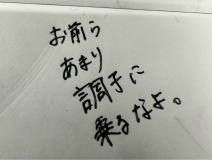 お前ら
あまり
調子に
乗るなよ。